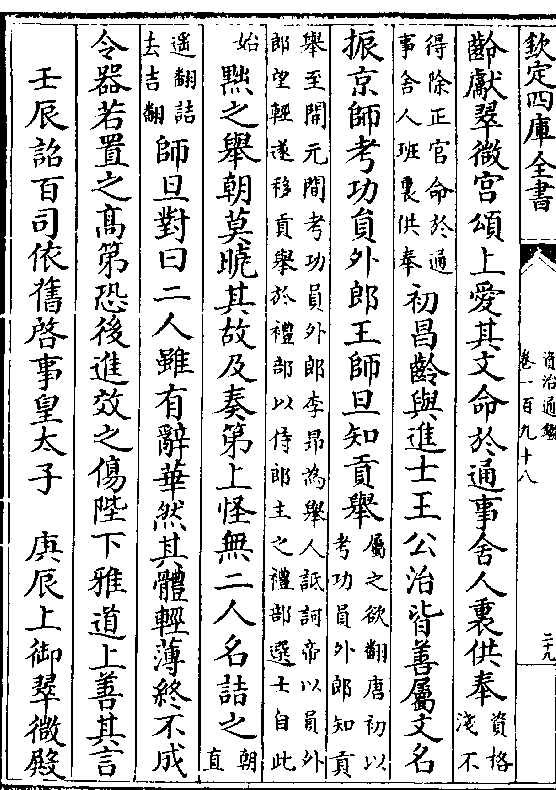 欽定四庫全書
資治通鑑
卷一百九十八
二十九
齡獻翠微宮頌上愛其文命於通事舍人裏供奉資格淺不
得除正官命於通事舍人班裏供奉初昌齡與進士王公治皆善屬文名
振京師考功貟外郎王師旦知貢舉屬之欲翻唐初以考功員外郎知貢
舉至開元間考功員外郎李昻為舉人詆訶帝以員外郎望輕遂移貢舉於禮部以侍郎主之禮部選士自此
始黜之舉朝莫曉其故及奏第上怪無二人名詰之朝直
遙翻詰去吉翻師旦對曰二人雖有辭華然其體輕薄終不成
令器若置之髙第恐後進效之傷陛下雅道上善其言
壬辰詔百司依舊啓事皇太子　庚辰上御翠微殿